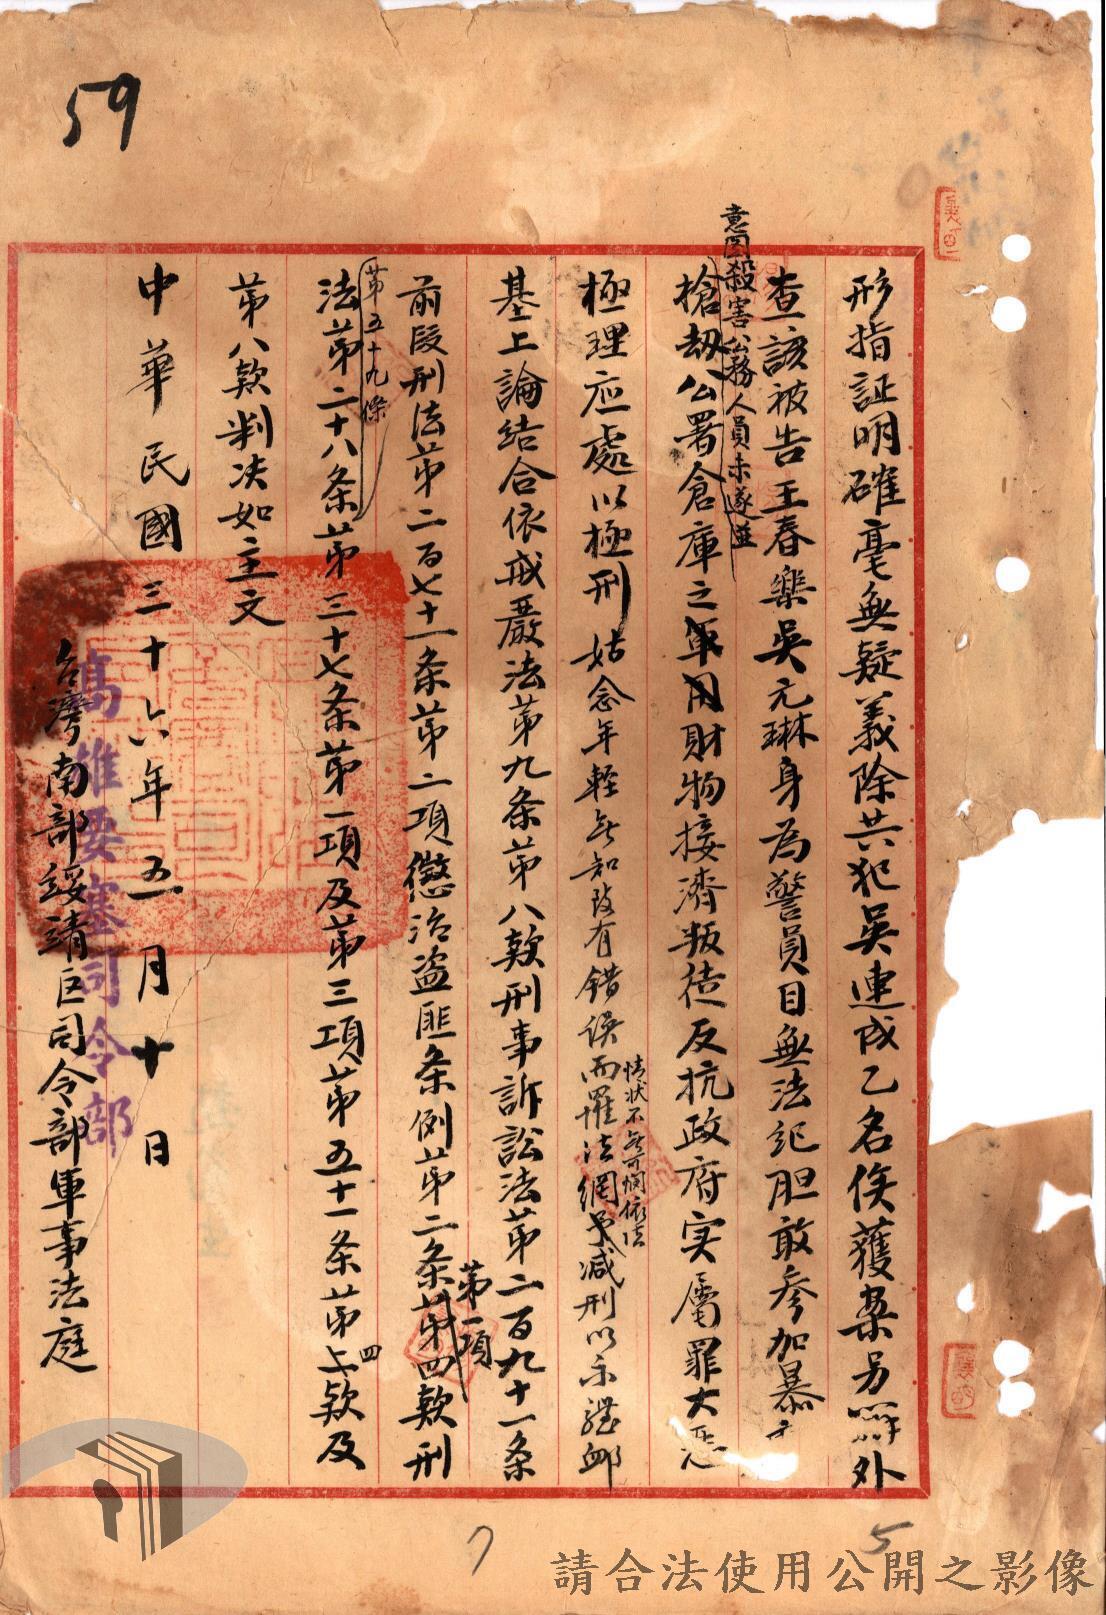 59
形指証明確毫無疑義除共犯吳連成乙名俟獲案另辦外
查該被告王春樂吳元琳身為警員目無法紀胆敢參加暴
意圖殺害公務人員未遂並
搶劫公署倉庫之軍用財物接濟叛徒反抗政府实屬罪大惡
極理应處以極刑姑念年輕無知致有錯误而罹法網予减刑以示體卹
情状不無可憫依法
基上論結合依戒嚴法第九条第八款刑事訴訟法第二百九十一条
第一項
前段刑法第二百七十一条第二項懲治盗匪条例第二条第四款刑
第五十九條
法第二十八条第三十七条第一項及第三項第五十一条第上款及
四
第八款判决如主文
中華民國三十六年五月十日
台灣南部綏靖區司令部軍事法庭
高雄要塞司令部
5
7
請合法使用公開之影像